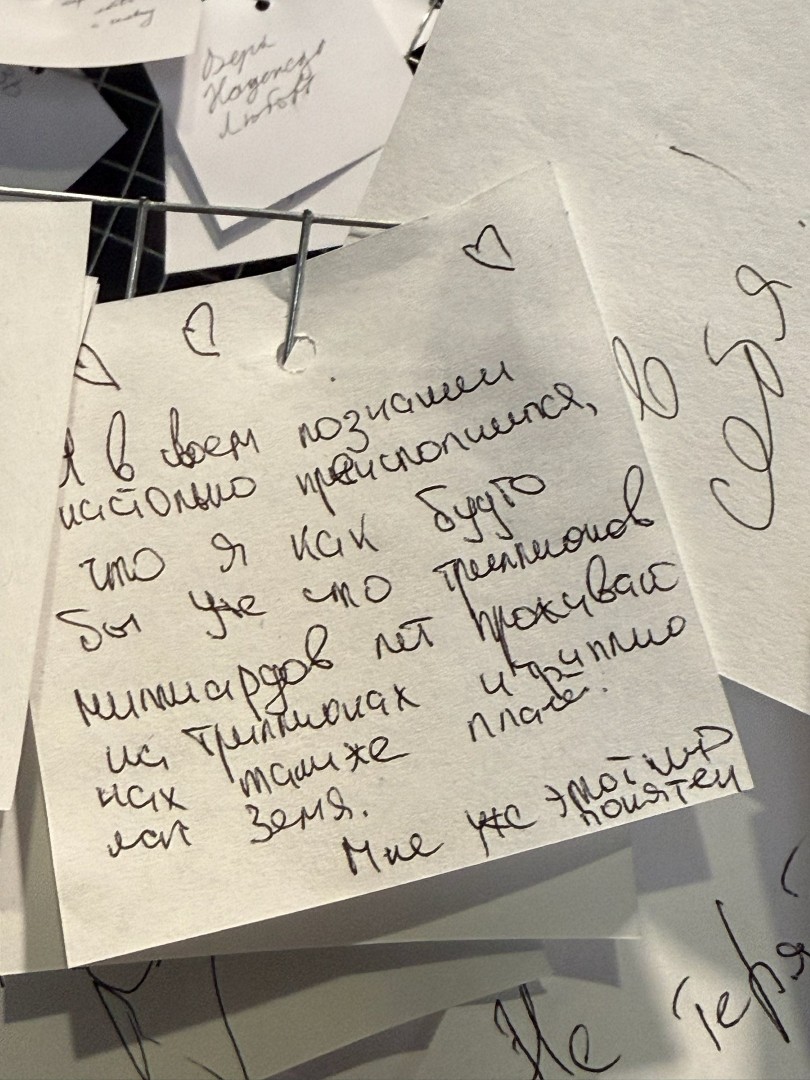 Вера
Надежда
Любовь
в
себя
Я в своем познании
настолько преисполнился,
что я как будто
бы уже сто триллионов
миллиардов лет проживаю
на триллионах и триллио
нах таких же плане.
как Земля.
Мне уже этот мир
понятен
Не теря